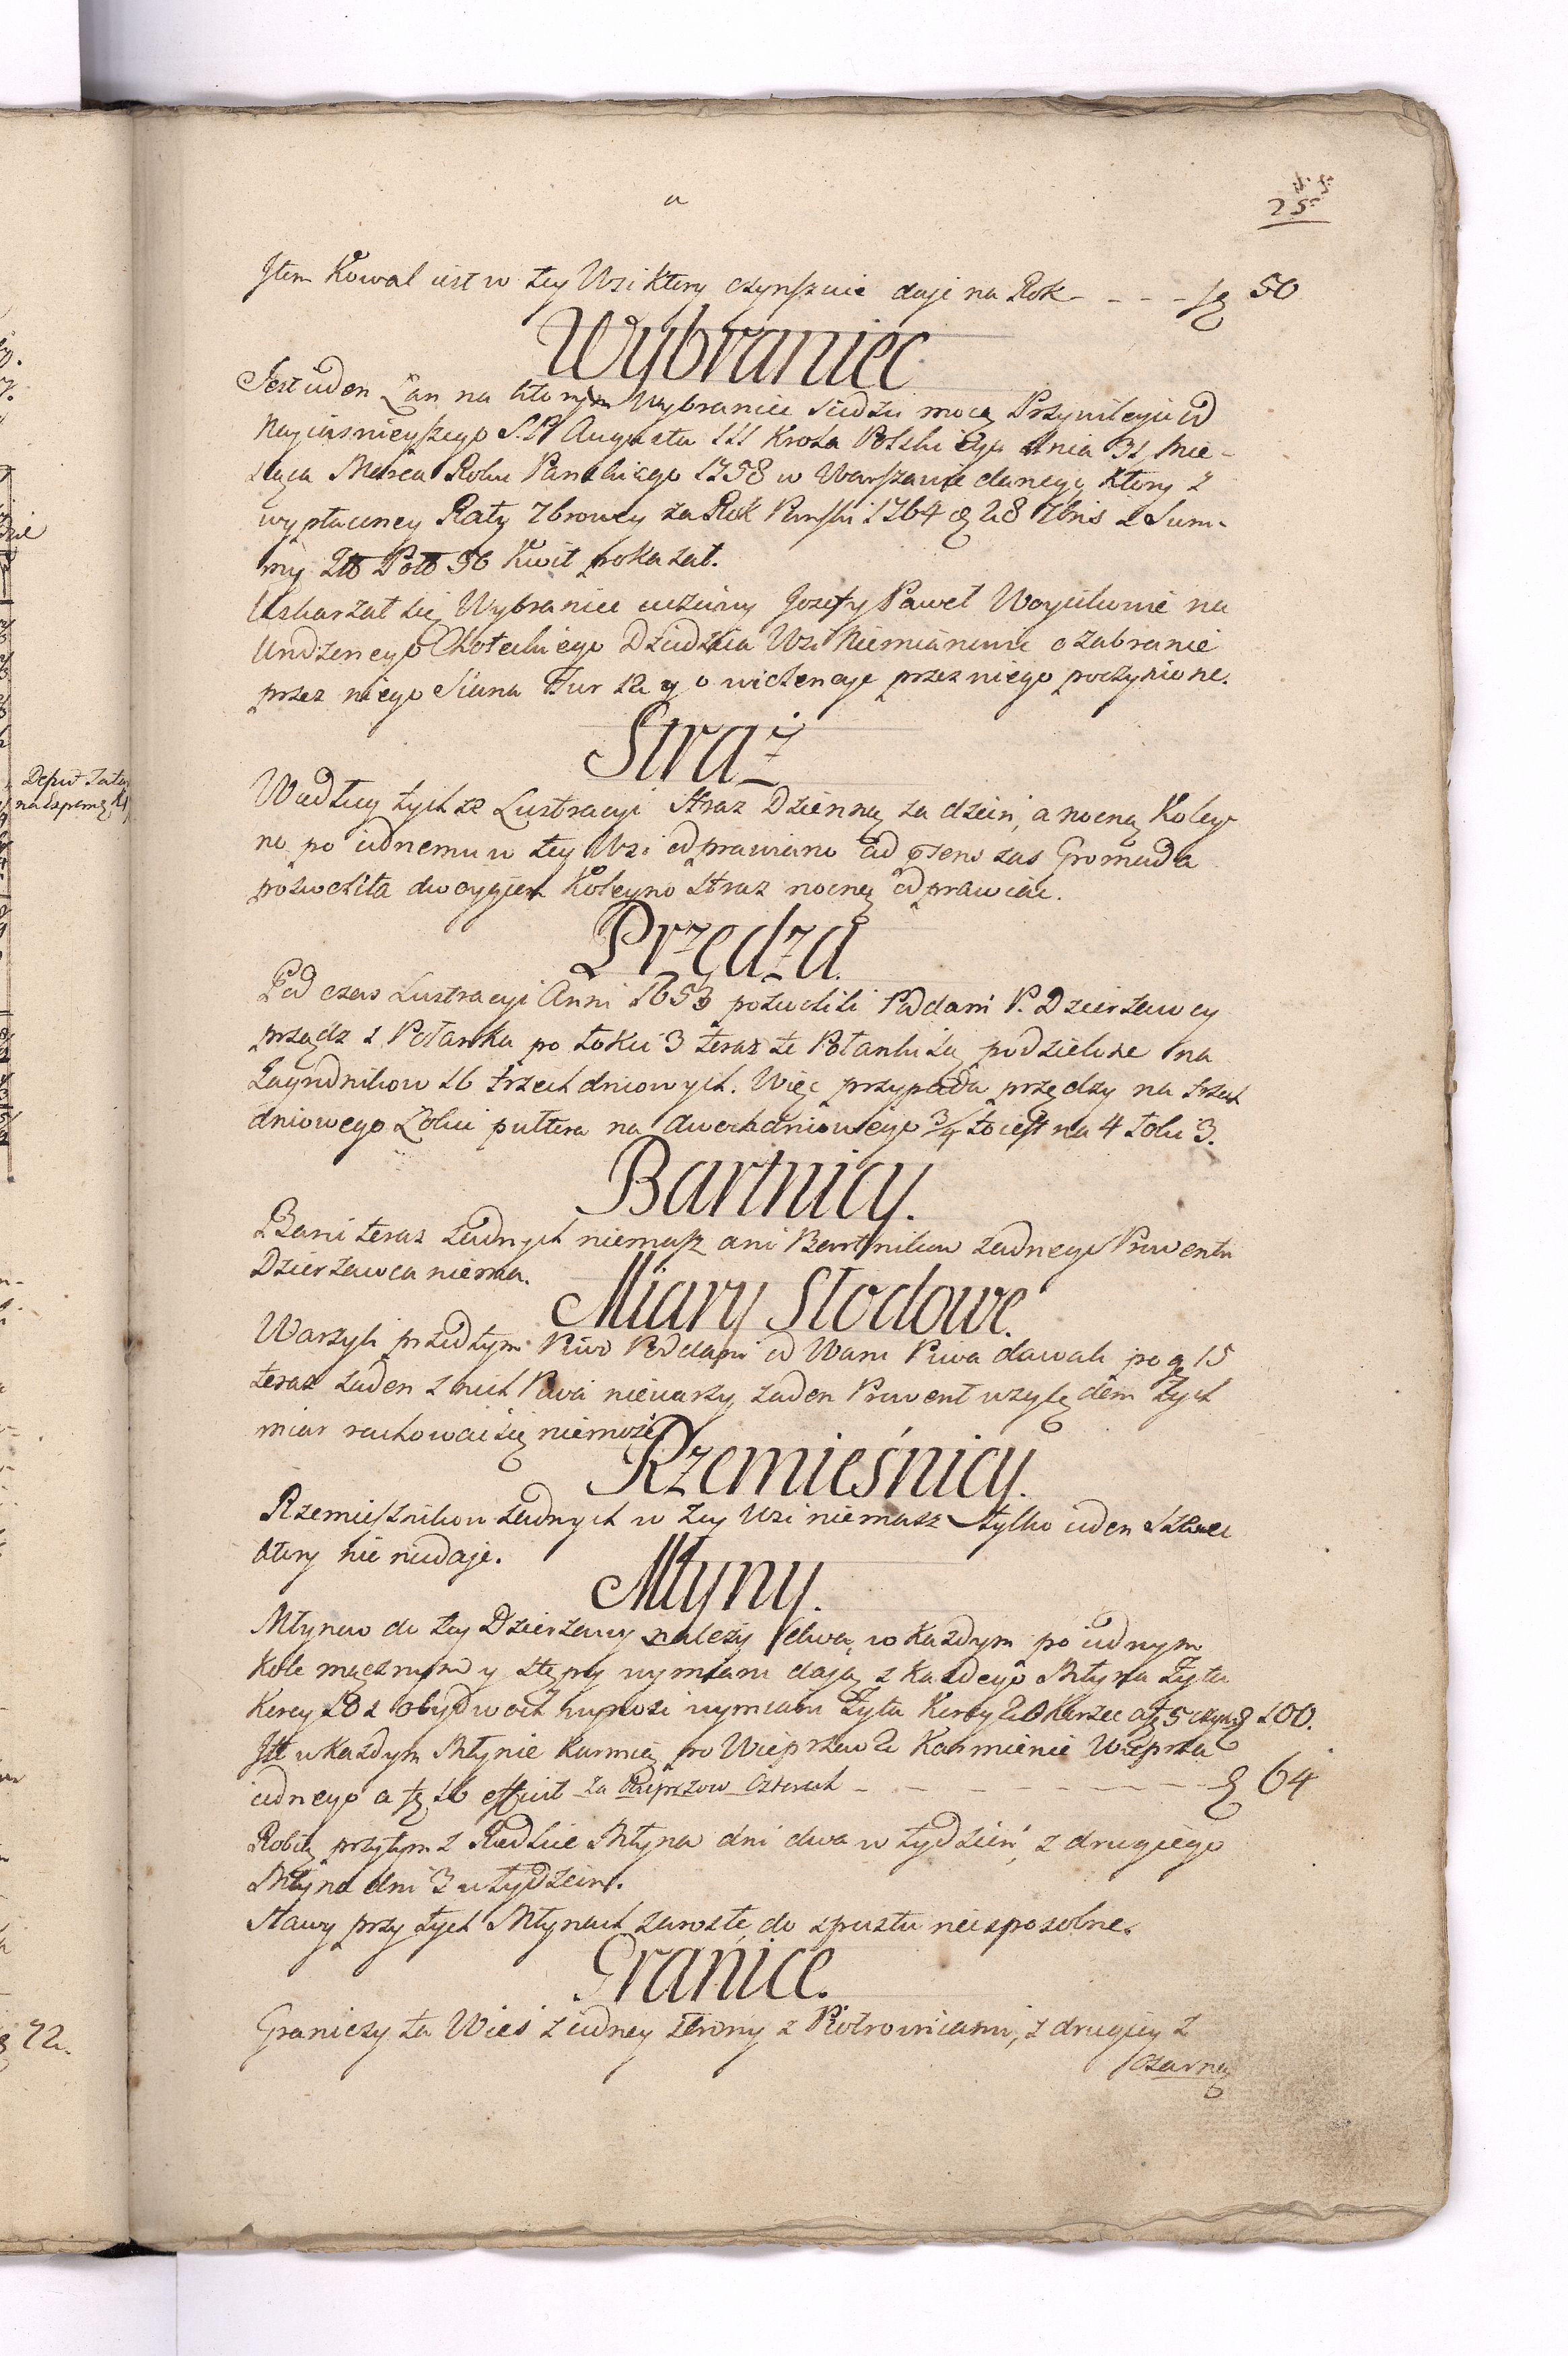 25
Item Kowal iest w tey Wsi ktory czynszuie daje na Rok - - - - fl 50
Wybraniec
Jest ieden Łan na ktorym Wybraniec siedzi mocą Przywileju od
Nayiasnieyszego S.P. Augusta III Krola Polskiego dnia 31 Mie-
siąca Marca Roku Panskiego 1758 w Warszawie danego, ktory z
wypłaconey Raty 7browey za Rok Panski 1764 28 7bris z Sum-
my 56 Kwit pokazał.
Uskarzał się Wybraniec Jozefy Paweł na
Chołeckiego Dziedzica Wsi o zabranie
przez niego Siana Fur 12 y o wiolencye przez niego poczynione.
Straż
Według tychze Lustracyi Straz Dzienną za dzein, a nocną Koley-
no po iednemu w tey Wsi odprawiano zas Gromada
pozwoliła dwoygiem Koleyno Straz nocną odprawiac.
Przędza
Pod czas Lustracyi Anni 1653 pozwolili Poddani P. Dzierzawcy
prządz z Połanka po Łokci 3 teraz te Połanki są podzielone na
Zagrodnikow 16 trzech dniowych. Więc przypada przędzy na trzech
dniowego Łokci pułtora na dwochdniowego 3/4 to iest na 4 Łokci 3.
Bartnicy.
Barci teraz zadnych niemasz ani Bartnikow zadnego Prowentu
Dzierzawca niema.
Miary Słodowe.
Warzyli przedtym Piwo Poddani od Waru Piwa dawali po g 15
teraz zaden z nich Piwa niewarzy zaden Prowent względem tych
miar rachowac się niemoże
Rzemieśnicy.
Rzemieslnikow zadnych w tey Wsi niemasz tylko ieden Szewc
ktory nic niedaje.
Młyny.
Młynow do tey Dzierzawy nalezy dwa, w kazdym po iednym
Kole mącznym y stępny wymiaru dają z kazdego Młyna Zyta
Korcy 10 z obydwoch wynosi wymiaru Zyta Korcy 20 Korzec a fl 5 czyni fl 100.
Itt w kazdym Młynie karmią po Wieprzow 2 Karmienie Wieprza
iednego a fl 16 efficit za Wieprzow Czterech - - - - - - - fl 64
Robią przytym z Rudzkie Młyna dni dwa w tydzień, z drugiego
Młyna dni 3 w tydzien.
Stawy przy tych Młynach zarosłe, do spustu niesposobne.
Granice.
Graniczy ta Wies z iedney strony z Piotrowicami, z drugiey z
Czarną
Deput
72.